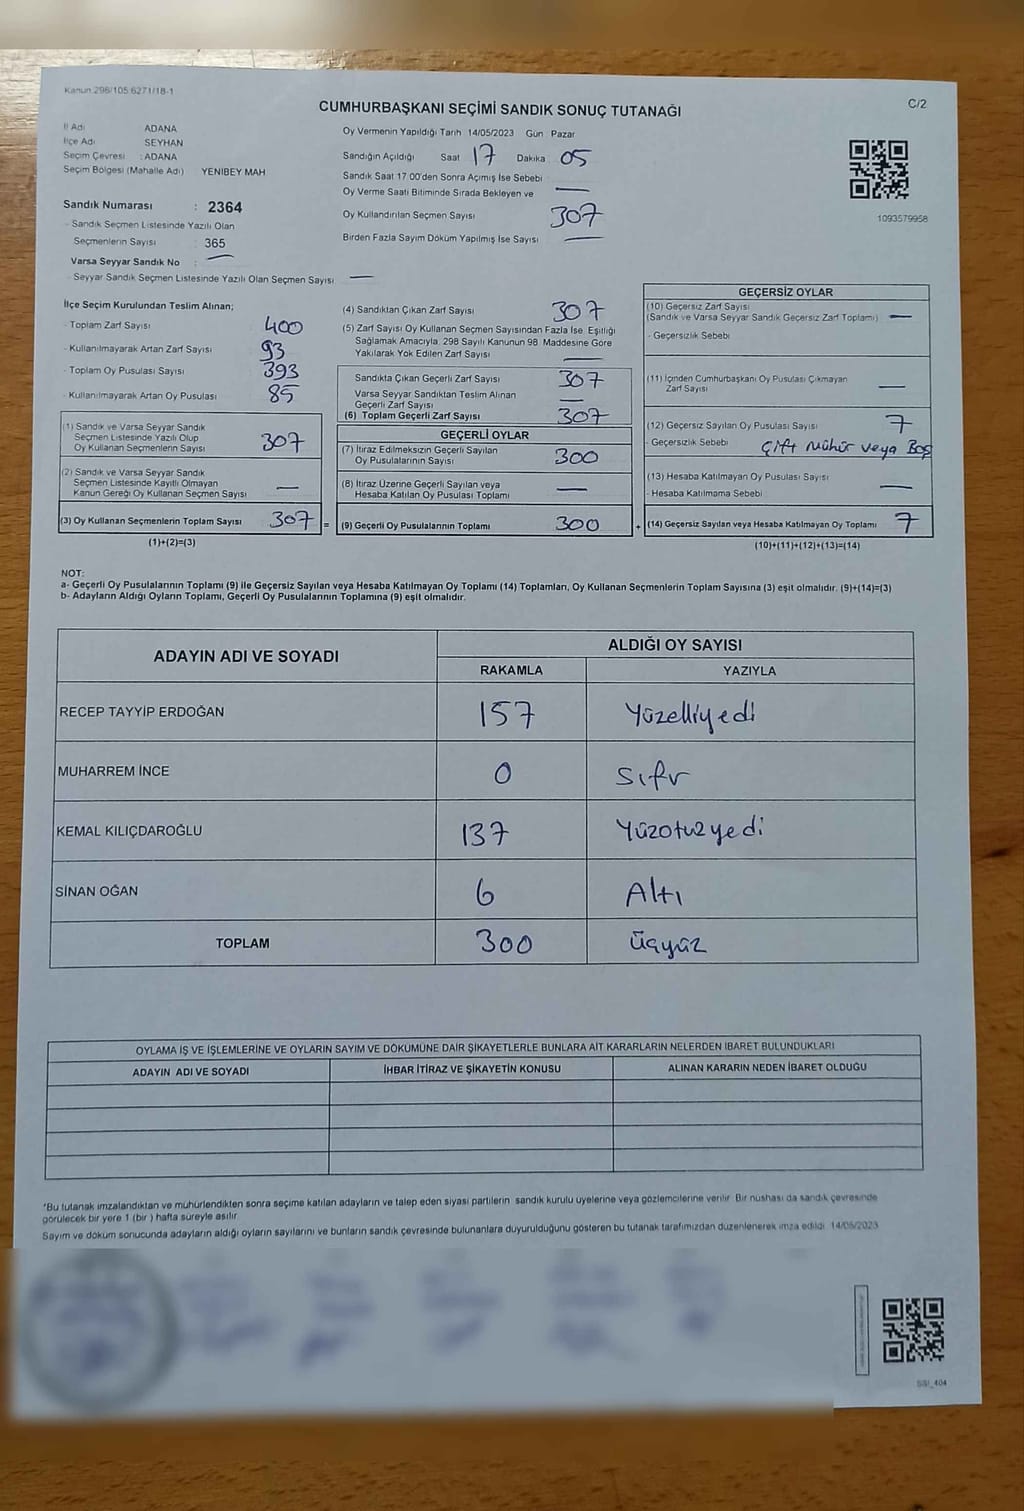 Kanun 298/105 6271/18-1
C/2
CUMHURBAŞKANI SEÇİMİ SANDIK SONUÇ TUTANAĞI
İl Adı ADANA
İlçe Adı SEYHAN
Seçim Çevresi : ADANA
Seçim Bölgesi (Mahalle Adı) YENIBEY MAH
Sandık Numarası : 2364
- Sandık Seçmen Listesinde Yazılı Olan
Seçmenlerin Sayısı 365
Varsa Seyyar Sandık No : —
- Seyyar Sandık Seçmen Listesinde Yazılı Olan Seçmen Sayısı —
Oy Vermenin Yapıldığı Tarih 14/05/2023 Gün Pazar
Sandığın Açıldığı Saat 17 Dakika 05
Sandık Saat 17 00'den Sonra Açımış İse Sebebi
Oy Verme Saati Bitiminde Sırada Bekleyen ve —
Oy Kullandırılan Seçmen Sayısı 307
Birden Fazla Sayım Döküm Yapılmış İse Sayısı —
1093579958
İlçe Seçim Kurulundan Teslim Alınan;
- Toplam Zarf Sayısı 400
- Kullanılmayarak Artan Zarf Sayısı 93
- Toplam Oy Pusulası Sayısı 393
- Kullanılmayarak Artan Oy Pusulası 85
(1) Sandık ve Varsa Seyyar Sandık
Seçmen Listesinde Yazılı Olup
Oy Kullanan Seçmenlerin Sayısı 307
(2) Sandık ve Varsa Seyyar Sandık
Seçmen Listesinde Kayıtlı Olmayan
Kanun Gereği Oy Kullanan Seçmen Sayısı —
(3) Oy Kullanan Seçmenlerin Toplam Sayısı 307 =
(1)+(2)=(3)
(4) Sandıktan Çıkan Zarf Sayısı 307
(5) Zarf Sayısı Oy Kullanan Seçmen Sayısından Fazla İse, Eşitliği
Sağlamak Amacıyla, 298 Sayılı Kanunun 98. Maddesine Göre
Yakılarak Yok Edilen Zarf Sayısı —
Sandıkta Çıkan Geçerli Zarf Sayısı 307
Varsa Seyyar Sandıktan Teslim Alınan
Geçerli Zarf Sayısı —
(6) Toplam Geçerli Zarf Sayısı 307
GEÇERLİ OYLAR
(7) İtiraz Edilmeksizin Geçerli Sayılan
Oy Pusulalarının Sayısı 300
(8) İtiraz Üzerine Geçerli Sayılan veya
Hesaba Katılan Oy Pusulası Toplamı —
(9) Geçerli Oy Pusulalarının Toplamı 300 +
GEÇERSİZ OYLAR
(10) Geçersiz Zarf Sayısı
(Sandık ve Varsa Seyyar Sandık Geçersiz Zarf Toplamı) —
- Geçersizlik Sebebi
(11) İçinden Cumhurbaşkanı Oy Pusulası Çıkmayan
Zarf Sayısı —
(12) Geçersiz Sayılan Oy Pusulası Sayısı 7
- Geçersizlik Sebebi Çift Mühür veya Boş
(13) Hesaba Katılmayan Oy Pusulası Sayısı —
- Hesaba Katılmama Sebebi
(14) Geçersiz Sayılan veya Hesaba Katılmayan Oy Toplamı 7
(10)+(11)+(12)+(13)=(14)
NOT:
a- Geçerli Oy Pusulalarının Toplamı (9) ile Geçersiz Sayılan veya Hesaba Katılmayan Oy Toplamı (14) Toplamları, Oy Kullanan Seçmenlerin Toplam Sayısına (3) eşit olmalıdır. (9)+(14)=(3)
b- Adayların Aldığı Oyların Toplamı, Geçerli Oy Pusulalarının Toplamına (9) eşit olmalıdır.
ADAYIN ADI VE SOYADI ALDIĞI OY SAYISI
RAKAMLA YAZIYLA
RECEP TAYYİP ERDOĞAN 157 Yüzelliyedi
MUHARREM İNCE 0 Sıfır
KEMAL KILIÇDAROĞLU 137 Yüzotuzyedi
SİNAN OĞAN 6 Altı
TOPLAM 300 Üçyüz
OYLAMA İŞ VE İŞLEMLERİNE VE OYLARIN SAYIM VE DÖKÜMÜNE DAİR ŞİKAYETLERLE BUNLARA AİT KARARLARIN NELERDEN İBARET BULUNDUKLARI
ADAYIN ADI VE SOYADI İHBAR İTİRAZ VE ŞİKAYETİN KONUSU ALINAN KARARIN NEDEN İBARET OLDUĞU
*Bu tutanak imzalandıktan ve mühürlendikten sonra seçime katılan adayların ve talep eden siyasi partilerin sandık kurulu üyelerine veya gözlemcilerine verilir. Bir nüshası da sandık çevresinde
görülecek bir yere 1 (bir ) hafta süreyle asılır.
Sayım ve döküm sonucunda adayların aldığı oyların sayılarını ve bunların sandık çevresinde bulunanlara duyurulduğunu gösteren bu tutanak tarafımızdan düzenlenerek imza edildi. 14/05/2023